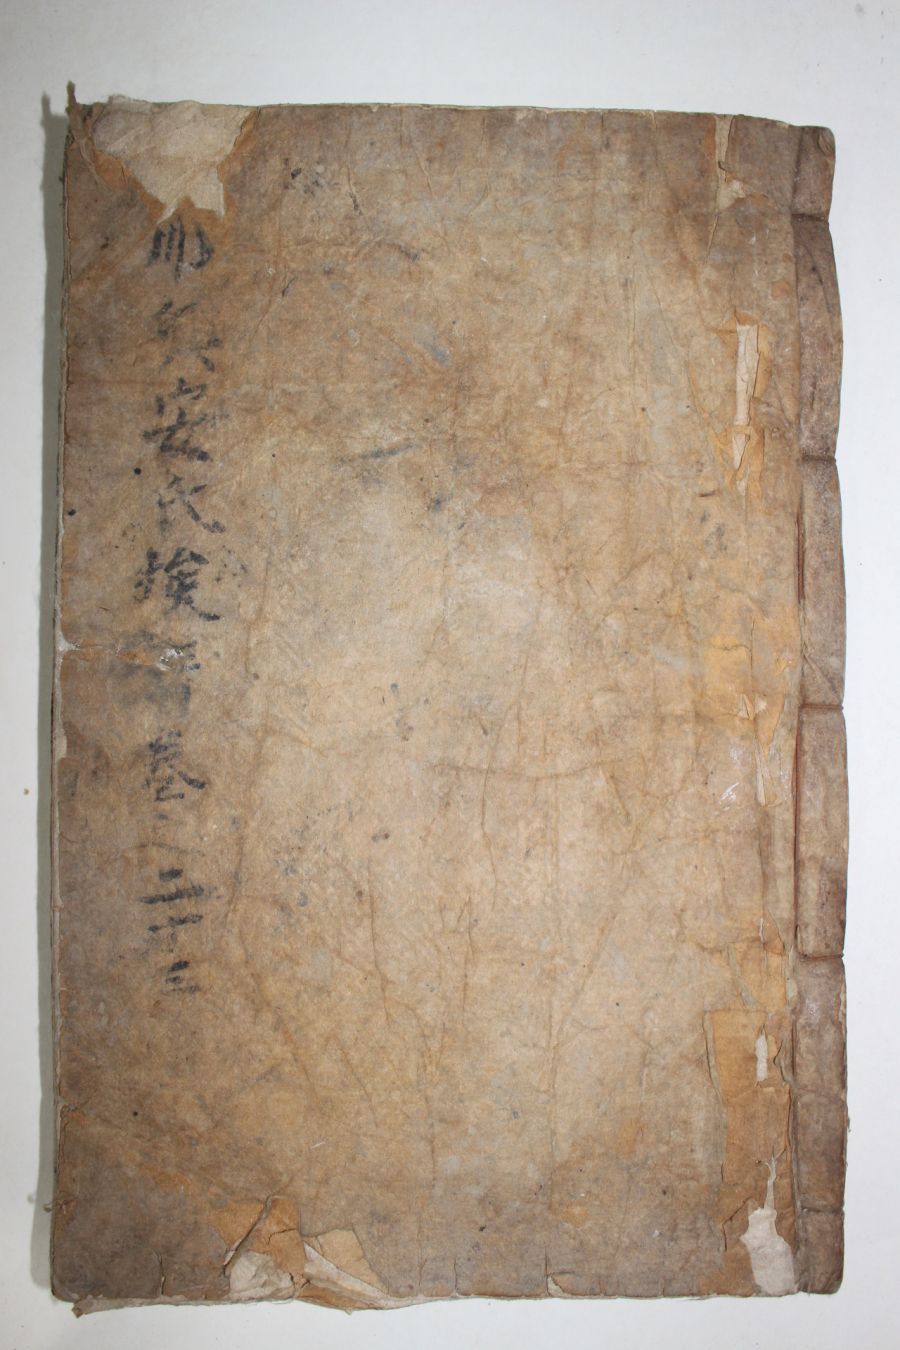 順興安氏族譜卷之二十三